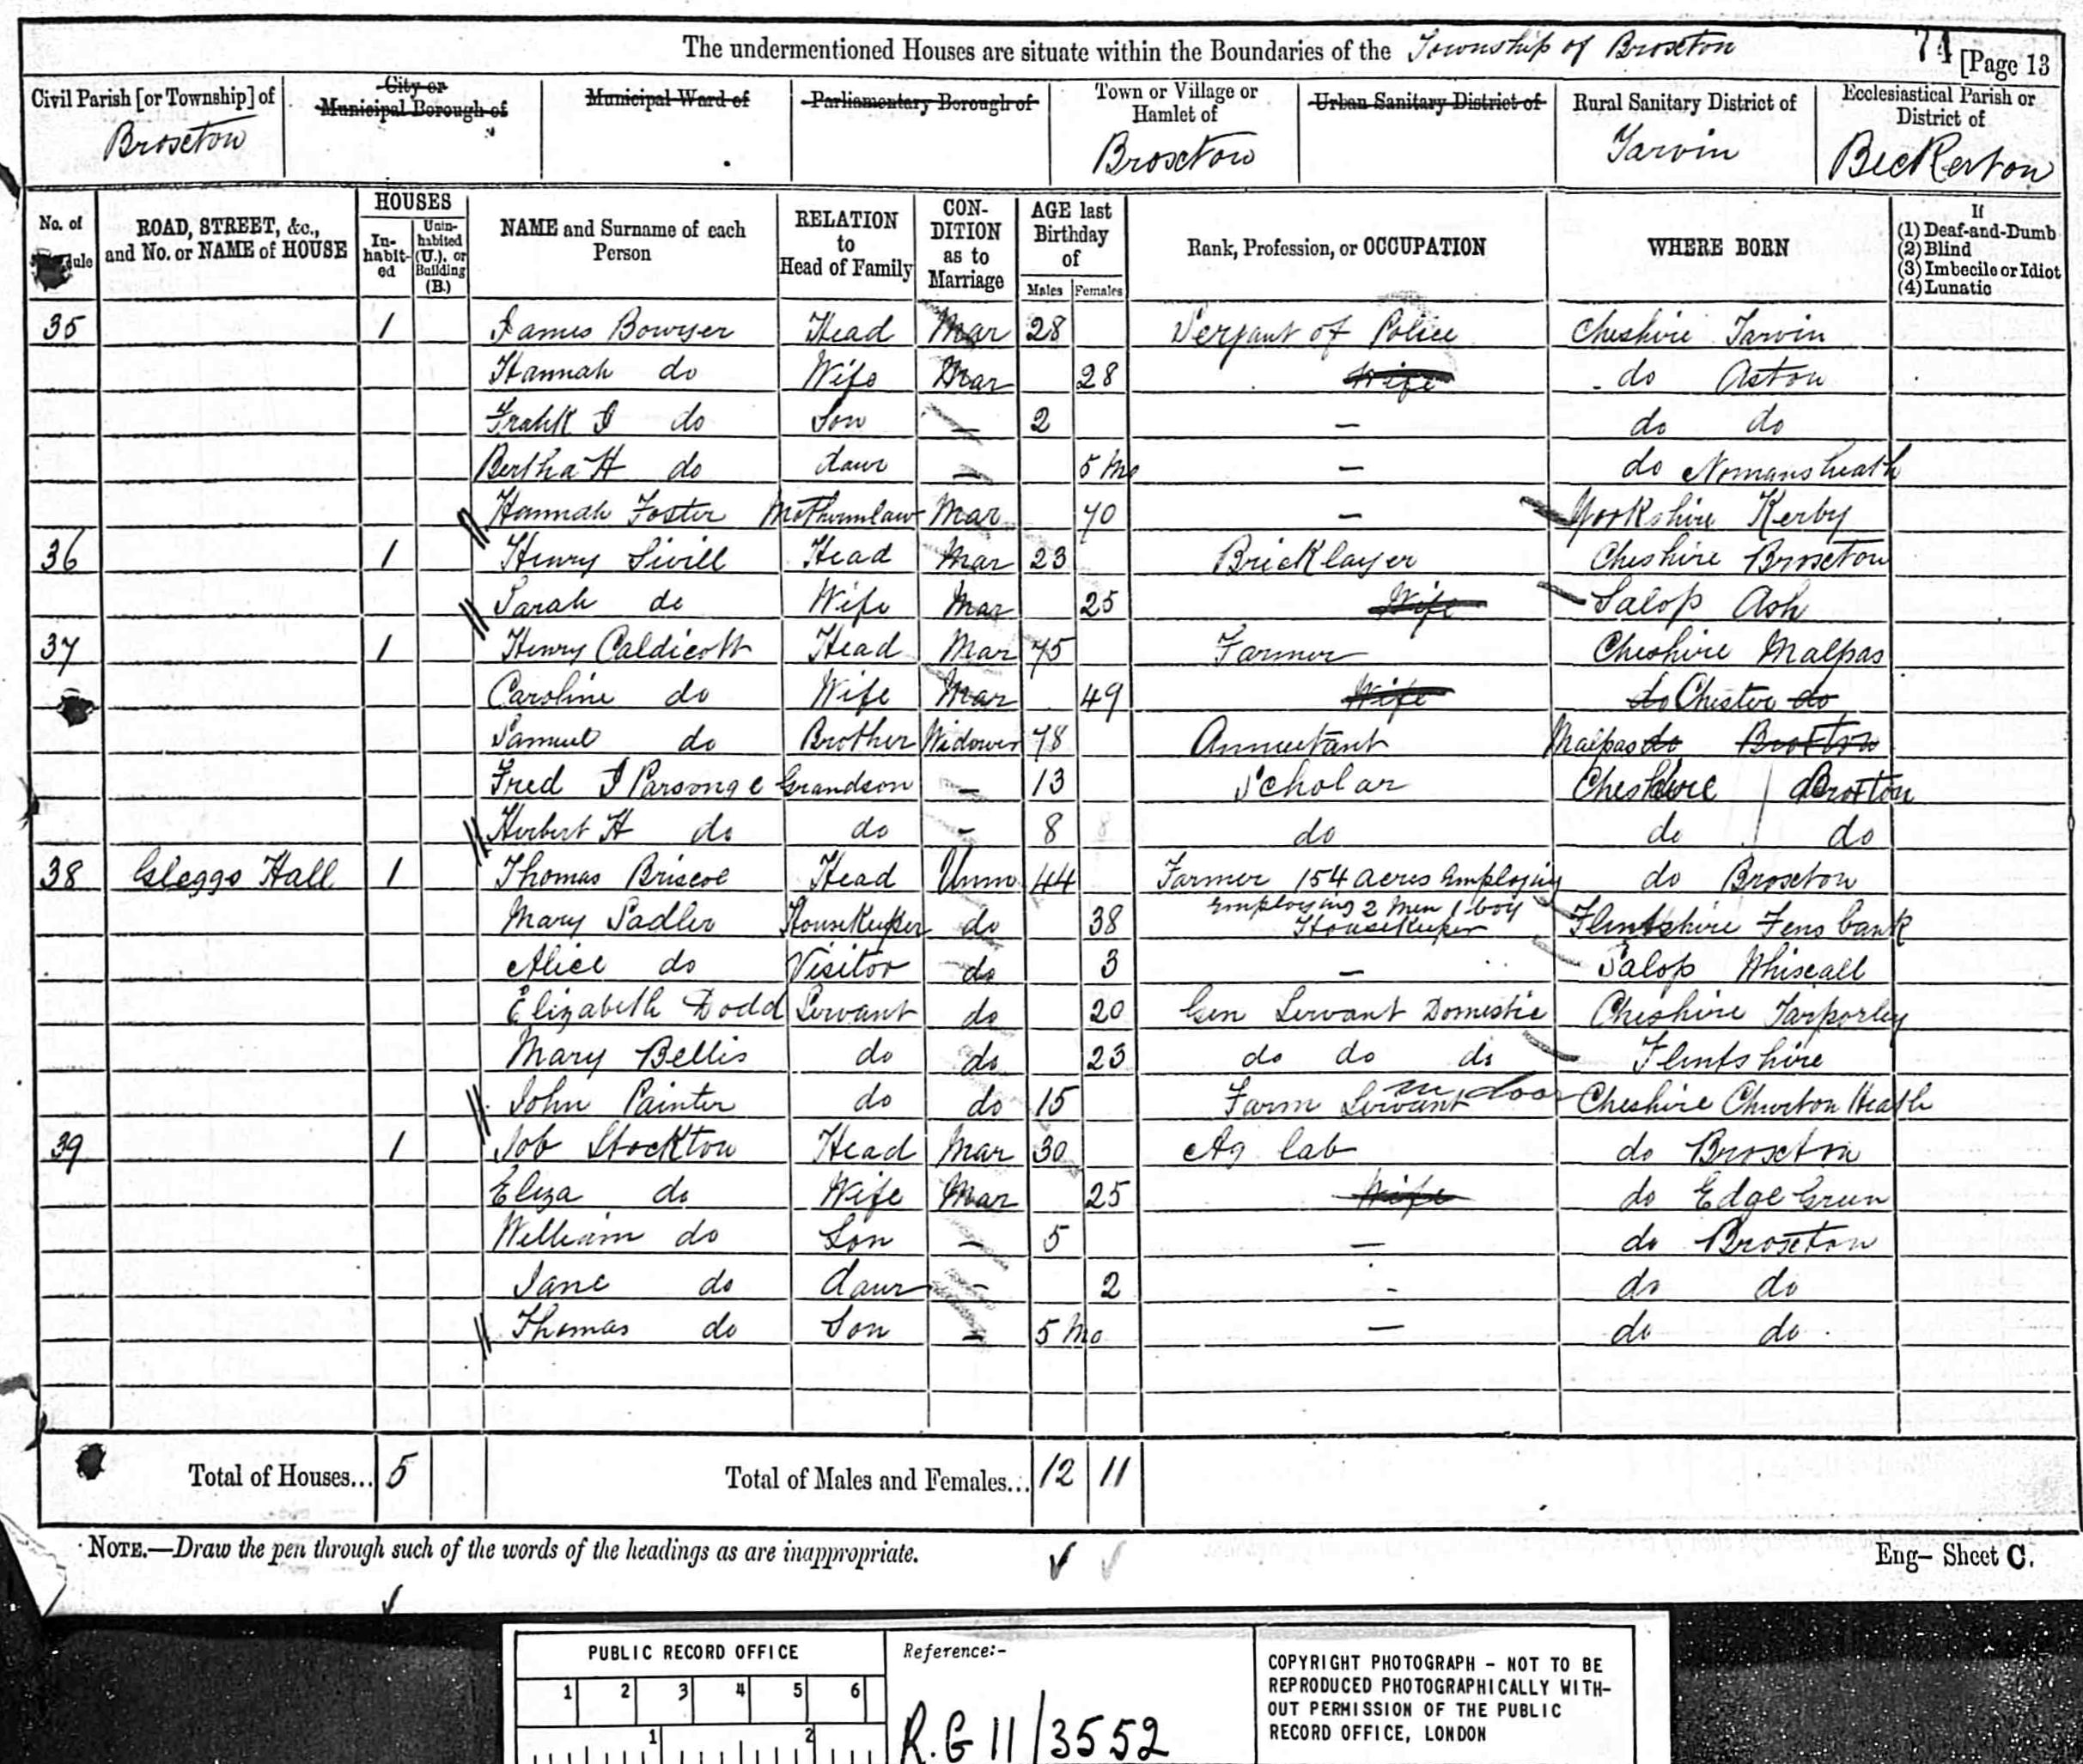 The undermentioned Houses are situate within the Boundaries of the Township of Broxton 74 [Page 13
Civil Parish [or Township] of Broxton
City or Municipal Borough of
Municipal Ward of
Parliamentary Borough of
Town or Village or Hamlet of Broxton
Urban Sanitary District of
Rural Sanitary District of Tarvin
Ecclesiastical Parish or District of Bickerton
No. of
ROAD, STREET, &c., and No. or NAME of HOUSE
HOUSES
In-habit-ed
Unin-habited (U.), or Building (B.)
NAME and Surname of each Person
RELATION to Head of Family
CON-DITION as to Marriage
AGE last Birthday of
Males Females
Rank, Profession, or OCCUPATION
WHERE BORN
If
(1) Deaf-and-Dumb
(2) Blind
(3) Imbecile or Idiot
(4) Lunatic
35 1 James Bowyer Head Mar 28 Serjant of Police Cheshire Tarvin
Hannah do Wife Mar 28 Wife do Aston
Frank J do Son — 2 — do do
Bertha H do daur — 5 Mo — do Nomansheath
Hannah Foster Motherinlaw Mar 70 — Yorkshire Kerby
36 1 Henry Sivill Head Mar 23 Bricklayer Cheshire Broxton
Sarah do Wife Mar 25 Wife Salop Ash
37 1 Henry Caldicott Head Mar 75 Farmer Cheshire Malpas
Caroline do Wife Mar 49 Wife do Chester do
Samuel do Brother Widower 78 Annuitant Malpas do Broxton
Fred J Parsonge Grandson — 13 Scholar Cheshire Broxton
Herbert H do do - 8 do do do
38 Gleggs Hall 1 Thomas Briscoe Head Unm 44 Farmer 154 acres Employing do Broxton
employing 2 men 1 boy
Mary Sadler Housekeeper do 38 Housekeeper Flintshire Fens bank
Alice do Visitor do 3 — Salop Whixall
Elizabeth Dodd Servant do 20 Gen Servant Domestic Cheshire Tarporley
Mary Bellis do do 23 do do do Flintshire
John Painter do do 15 Farm Servant indoor Cheshire Churton Heath
39 1 Job Stockton Head Mar 30 Ag lab do Broxton
Eliza do Wife Mar 25 Wife do Edge Green
William do Son — 5 — do Broxton
Jane do daur - 2 - do do
Thomas do Son - 5 Mo — do do
Total of Houses... 5 Total of Males and Females... 12 11
NOTE.—Draw the pen through such of the words of the headings as are inappropriate.
Eng– Sheet C.
PUBLIC RECORD OFFICE
1 2 3 4 5 6
1 2
Reference:-
R.G 11/3552
COPYRIGHT PHOTOGRAPH - NOT TO BE
REPRODUCED PHOTOGRAPHICALLY WITH-
OUT PERMISSION OF THE PUBLIC
RECORD OFFICE, LONDON